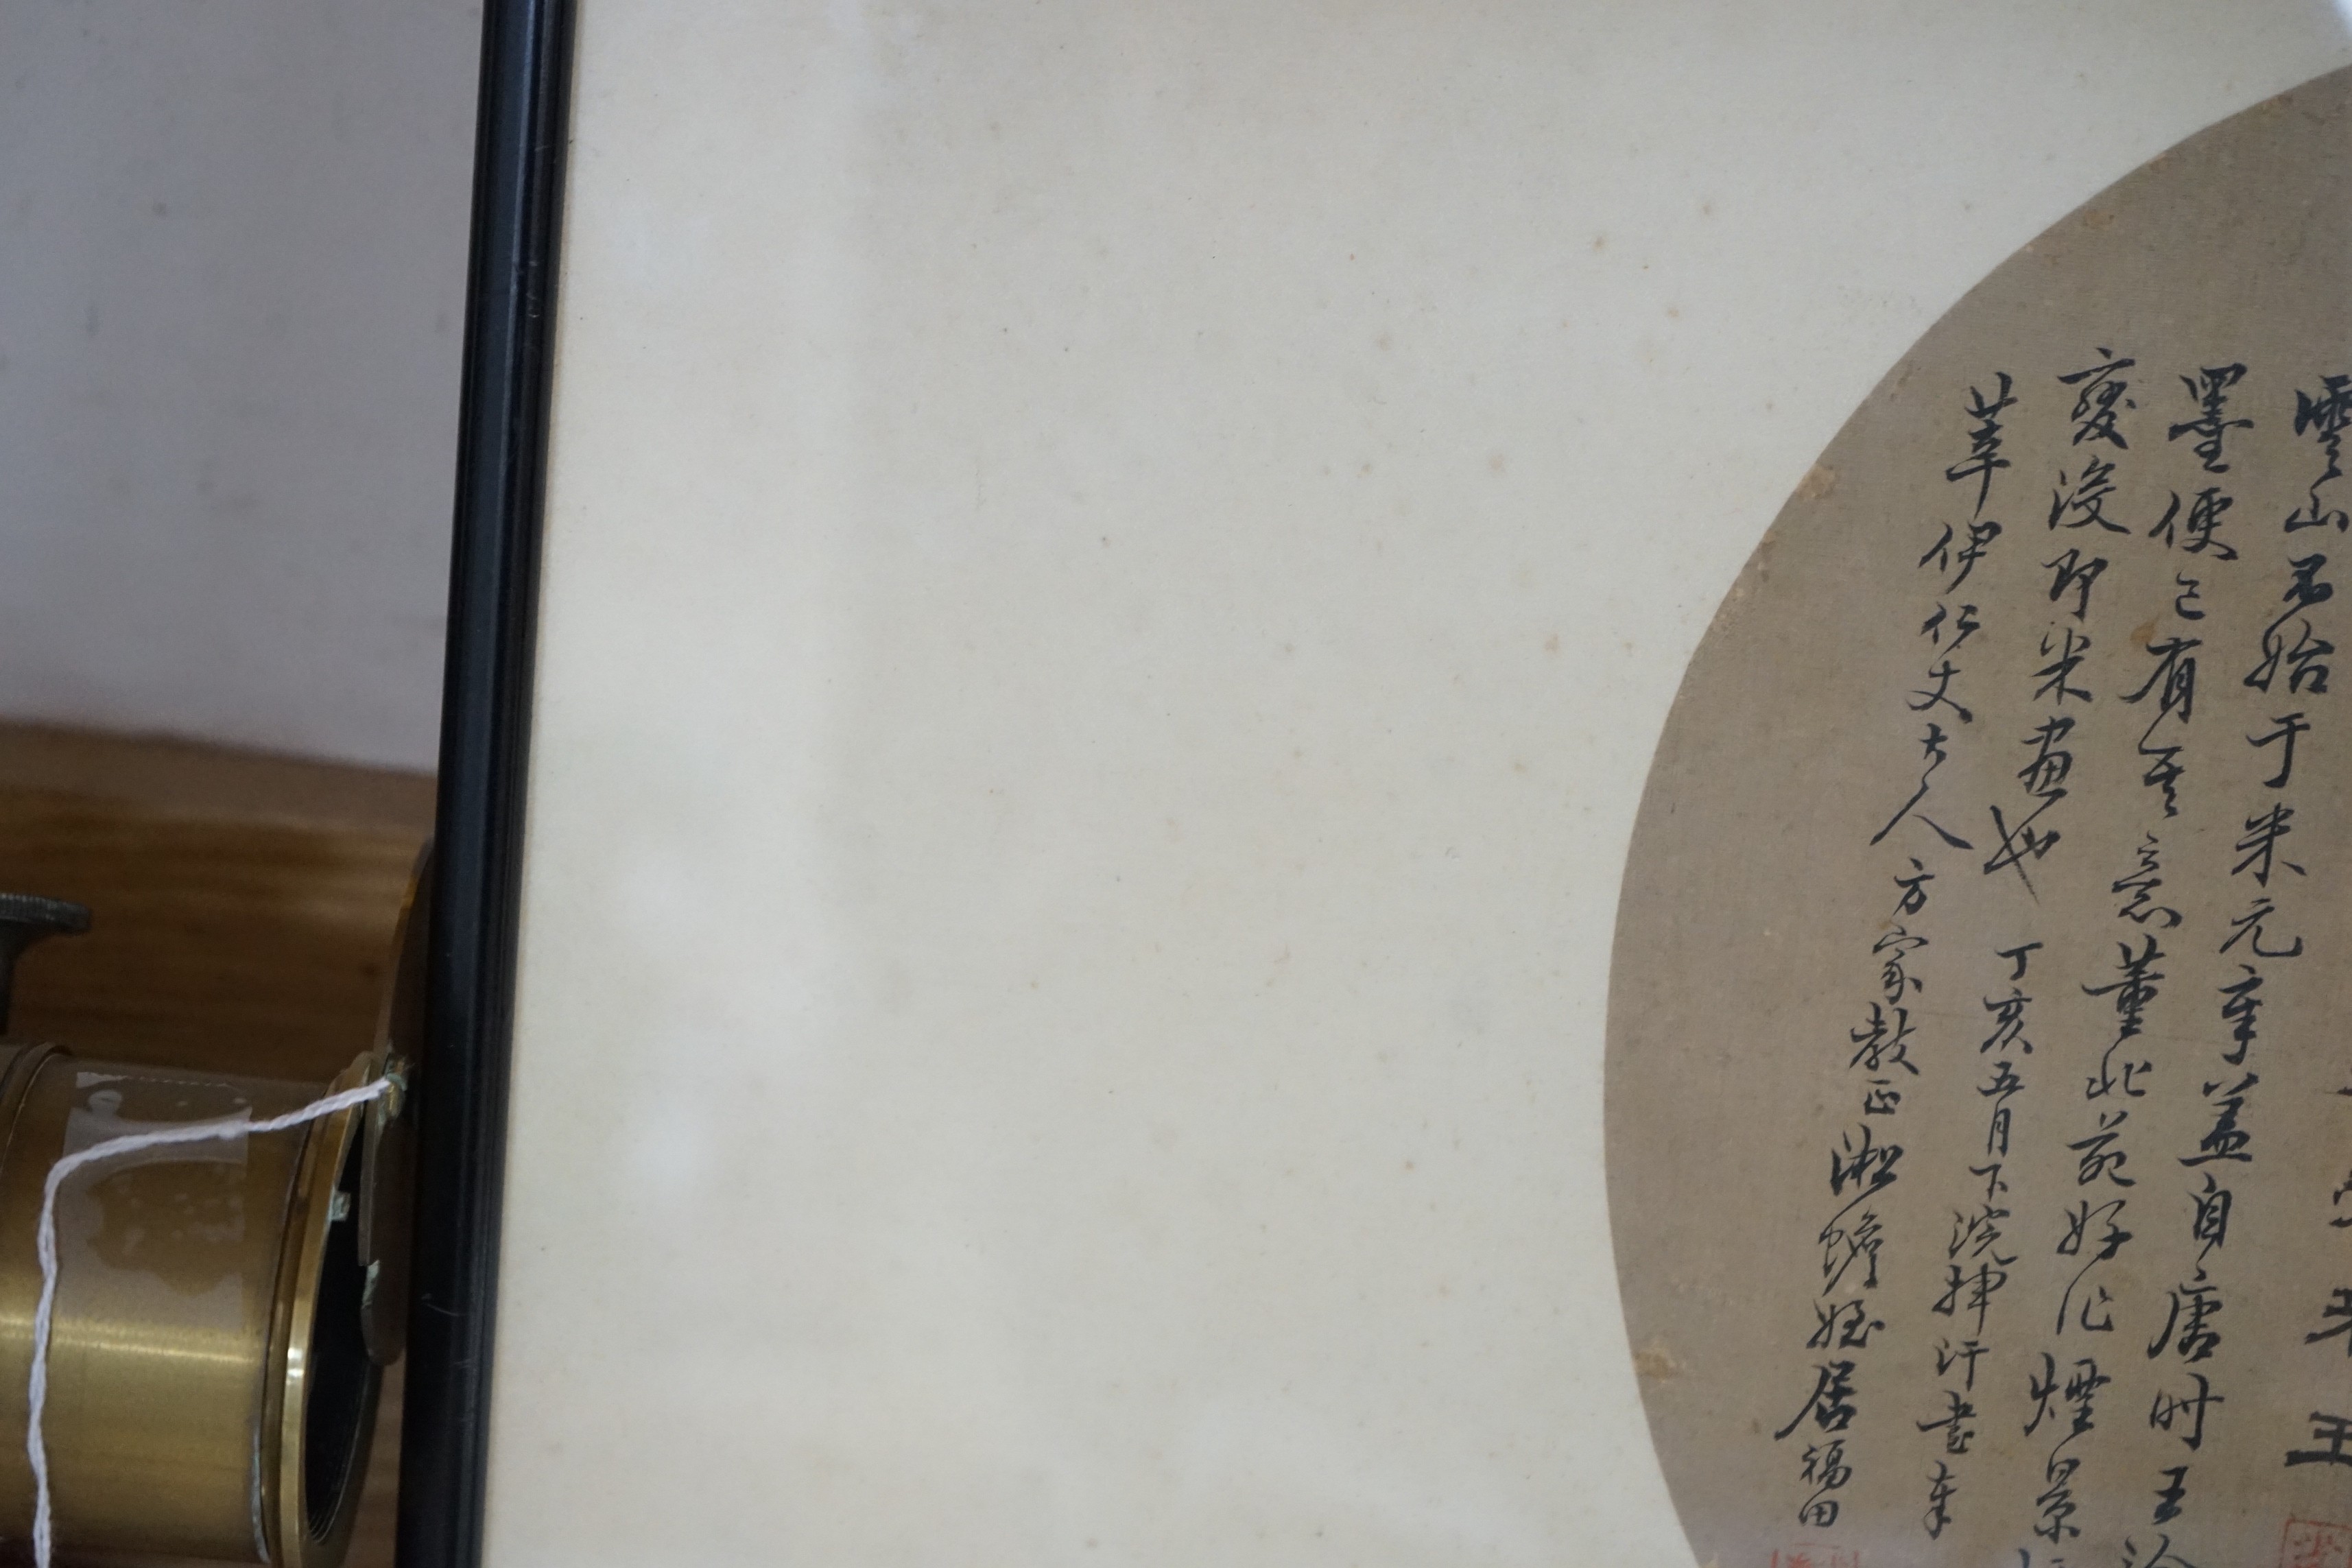 雲山不始于米元章蓋自唐时王
墨便已有其意董北苑好作煙景
變没即米畫也 丁亥五月下浣揮汗書奉
莘伊仁丈大人方家教正 蟾姪居福田